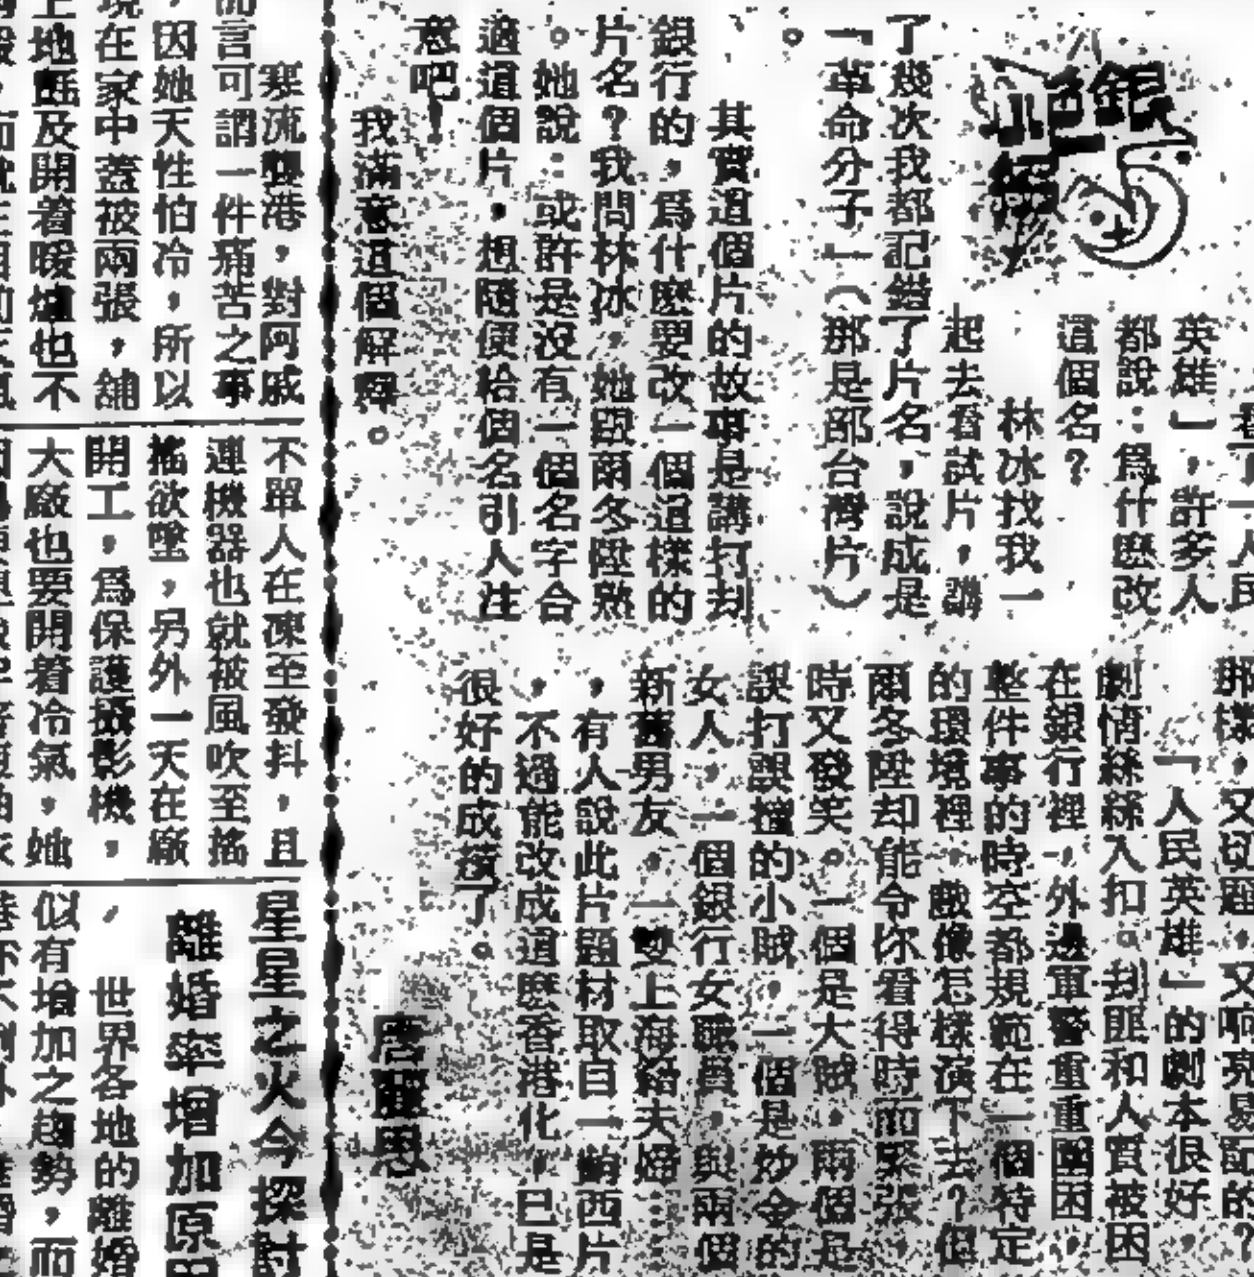 銀色
英雄」，許多人
都說：爲什麽改
這個名？
林冰找我一
起去看試片，講
了幾次我都記錯了片名，說成是
「革命分子」（那是部台灣片）
。
其實這個片的故事是講打刦
銀行的，爲什麽要改一個這樣的
片名？我問林冰，她跟爾冬陞熟
。她說：或許是沒有一個名字合
適這個片，想隨便給個名引人注
意吧！
我滿意這個解釋。
「人民英雄」的劇本很好
劇情絲絲入扣。刦匪和人質被困
在銀行裡，外邊軍警重重圍困
整件事的時空都規範在一個特定
的環境裡，戲像怎樣演下去？但
爾冬陞却能令你看得時而緊張
時又發笑。一個是大賊，兩個是
誤打誤撞的小賊，一個是妙令的
女人，一個銀行女職員，與兩個
新舊男友，一雙上海籍夫婦……
，有人說此片題材取自一齣西片
，不過能改成這麽香港化，已是
很好的成績了。
寒流襲港，對阿戚
而言可謂一件痛苦之事
，因她天性怕冷，所以
現在家中蓋被兩張，舖
上地氈及開着暖爐也不
不單人在凍至發抖，且
連機器也就被風吹至搖
搖欲墜，另外一天在廠
開工，爲保護攝影機，
大廠也要開着冷氣，她
星星之火今探討
離婚率增加原因
世界各地的離婚
似有增加之趨勢，而